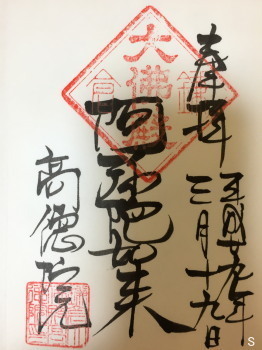 奉拝
平成廿九年
三月十九日
大佛殿
鎌
倉
阿弥陀如来
高徳院
S